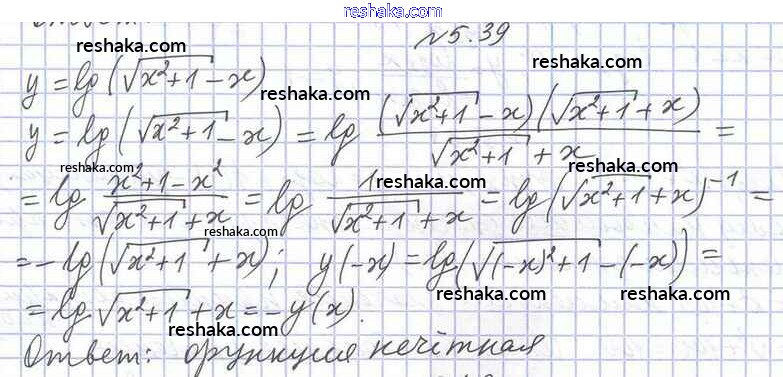 www.reshaka.com
Ответ:
№5.39
reshaka.com
y = lg(√(x²+1) - x)
reshaka.com
reshaka.com
y = lg(√(x²+1) - x) = lg ((√(x²+1) - x)(√(x²+1) + x))/(√(x²+1) + x) =
reshaka.com
reshaka.com
= lg (x²+1-x²)/(√(x²+1) + x) = lg 1/(√(x²+1) + x) = lg(√(x²+1) + x)⁻¹ =
reshaka.com
reshaka.com
= -lg(√(x²+1) + x); y(-x) = lg(√((-x)²+1) - (-x)) =
reshaka.com
reshaka.com
= lg √(x²+1) + x = -y(x).
reshaka.com
Ответ: функция нечётная